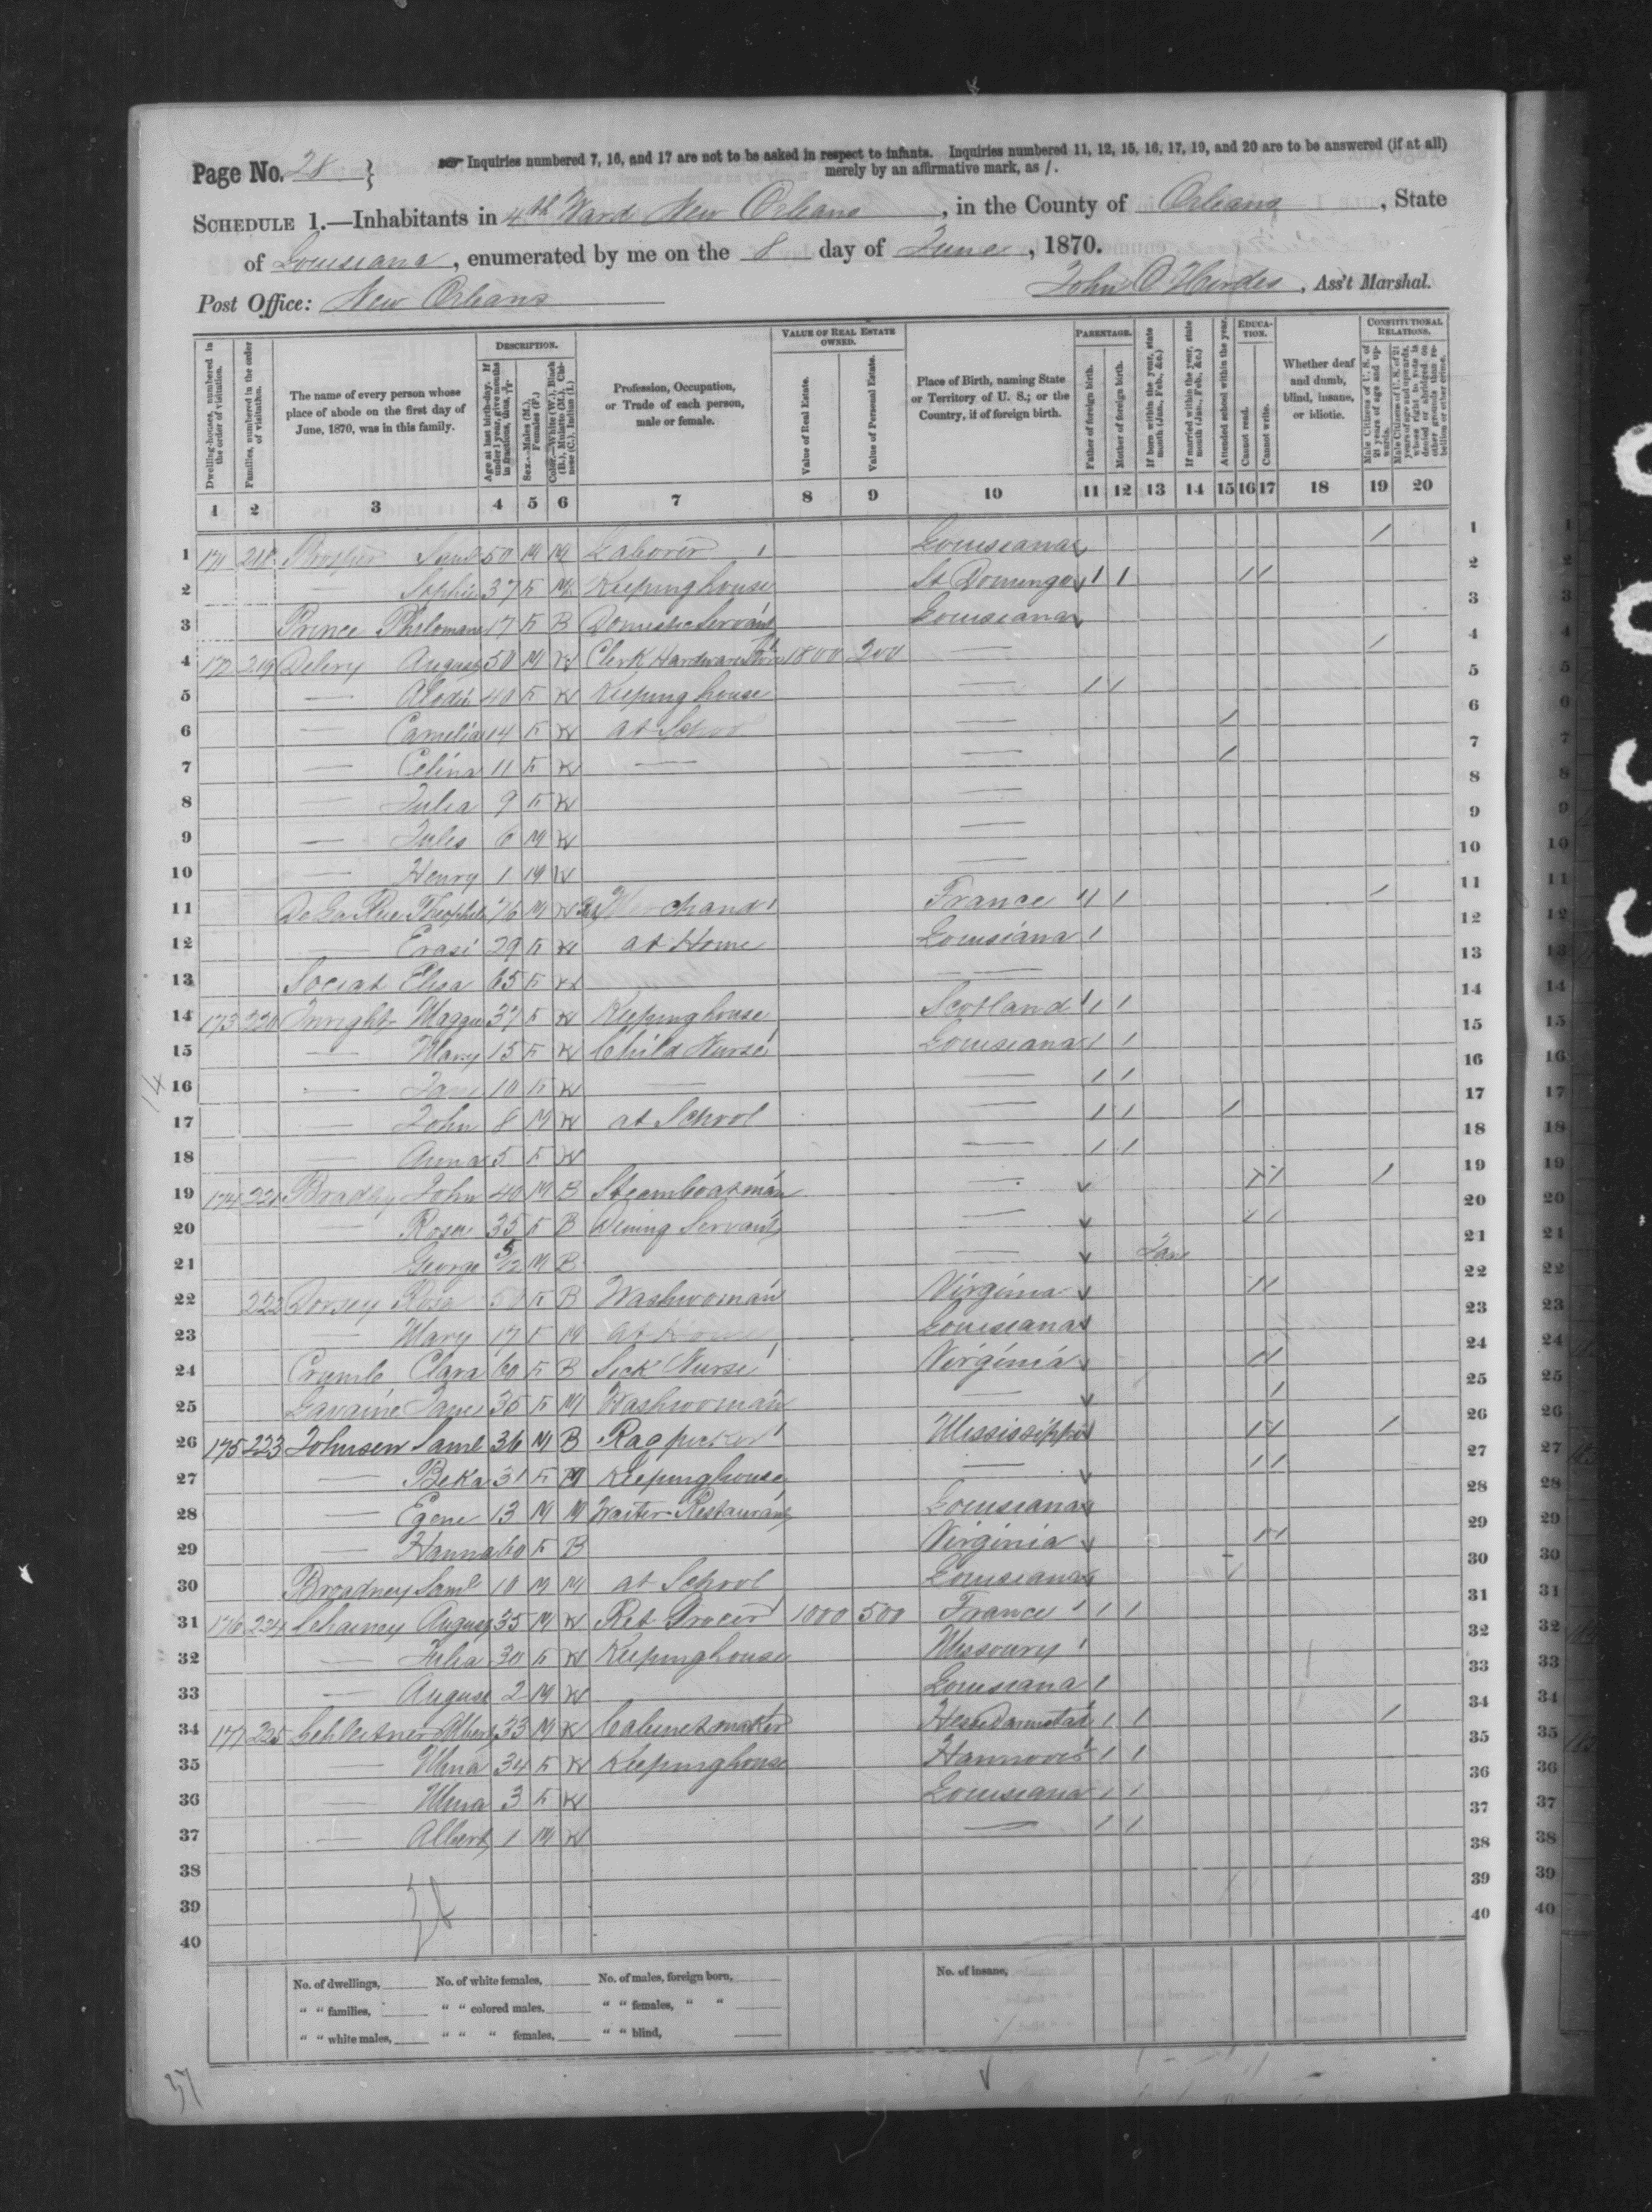 Page No. 28 } Inquiries numbered 7, 16, and 17 are not to be asked in respect to infants. Inquiries numbered 11, 12, 15, 16, 17, 19, and 20 are to be answered (if at all)
merely by an affirmative mark, as /.
SCHEDULE 1.—Inhabitants in 4th Ward New Orleans, in the County of Orleans, State
of Louisiana, enumerated by me on the 8 day of June, 1870.
Post Office: New Orleans
John O. , Ass't Marshal.
Dwelling-houses, numbered in the order of visitation.
Families, numbered in the order of visitation.
The name of every person whose place of abode on the first day of June, 1870, was in this family.
DESCRIPTION.
Age at last birth-day. If under 1 year, give months in fractions, thus, 3/12
Sex.—Males (M.), Females (F.)
Color.—White (W.), Black (B.), Mulatto (M.), Chinese (C.), Indian (I.)
Profession, Occupation, or Trade of each person, male or female.
VALUE OF REAL ESTATE OWNED.
Value of Real Estate.
Value of Personal Estate.
Place of Birth, naming State or Territory of U. S.; or the Country, if of foreign birth.
PARENTAGE.
Father of foreign birth.
Mother of foreign birth.
If born within the year, state month (Jan., Feb., &c.)
If married within the year, state month (Jan., Feb., &c.)
Attended school within the year.
EDUCATION.
Cannot read.
Cannot write.
Whether deaf and dumb, blind, insane, or idiotic.
CONSTITUTIONAL RELATIONS.
Male Citizens of U. S. of 21 years of age and upwards.
Male Citizens of U. S. of 21 years of age and upwards, whose right to vote is denied or abridged on other grounds than rebellion or other crime.
1 2 3 4 5 6 7 8 9 10 11 12 13 14 15 16 17 18 19 20
1 171 218 Prosper Saml 50 M M Laborer Louisiana / 1
2 — Sophie 37 F M Keeping house St Domingo / / / / 2
3 Prince Philomane 17 F B Domestic Servant Louisiana 3
4 172 219 Delery August 50 M W Clerk Hardware Store 1800 200 — / 4
5 — Alodie 40 F W Keeping house — / / 5
6 — Camelia 14 F W at School — / 6
7 — Celina 11 F W — — / 7
8 — Julia 9 F W — 8
9 — Jules 6 M W — 9
10 — Henry 1 M W — 10
11 De La Rue Theophile 76 M W France / / / 11
12 — Erasi 29 F W at Home Louisiana / 12
13 Sociat Elisa 65 F W — 13
14 173 220 Enright Maggie 37 F W Keeping house Scotland / / 14
15 — Mary 15 F W Child Nurse Louisiana / / 15
16 — Jane 10 F W — — / / 16
17 — John 8 M W at School — / / / 17
18 — Anna 5 F W — / / 18
19 174 221 Bradley John 40 M B Steamboatman — / / / 19
20 — Rosa 35 F B Dining Servant — / / 20
21 — George 5/12 M B — Jan 21
22 222 Dorsey Rosa 50 F B Washwoman Virginia / / 22
23 — Mary 17 F M at Home Louisiana 23
24 Crumb Clara 60 F B Sick Nurse Virginia / / 24
25 Lavaine Jane 35 F M Washwoman — / 25
26 175 223 Johnson Saml 36 M B Rag picker Mississippi / / / 26
27 — Beka 31 F M Keeping house — / / 27
28 — Egene 13 M M Waiter Restaurant Louisiana 28
29 — Hanna 60 F B Virginia / / 29
30 Broadney Saml 10 M M at School Louisiana / 30
31 176 224 Lehainey August 35 M W Ret Grocer 1000 500 France / / 31
32 — Julia 30 F W Keeping house Missoury 32
33 — August 2 M W Louisiana / 33
34 177 225 Schleitner Albert 33 M W Cabinet maker Hesse Darmstadt / / / 34
35 — Mena 34 F W Keeping house Hannover / / 35
36 — Mena 3 F W Louisiana / / 36
37 — Albert 1 M W — / / 37
38 38
39 39
40 40
No. of dwellings, No. of white females, No. of males, foreign born, No. of insane,
" " families, " " colored males, " " females, " "
" " white males, " " " females, " " blind,
14
37